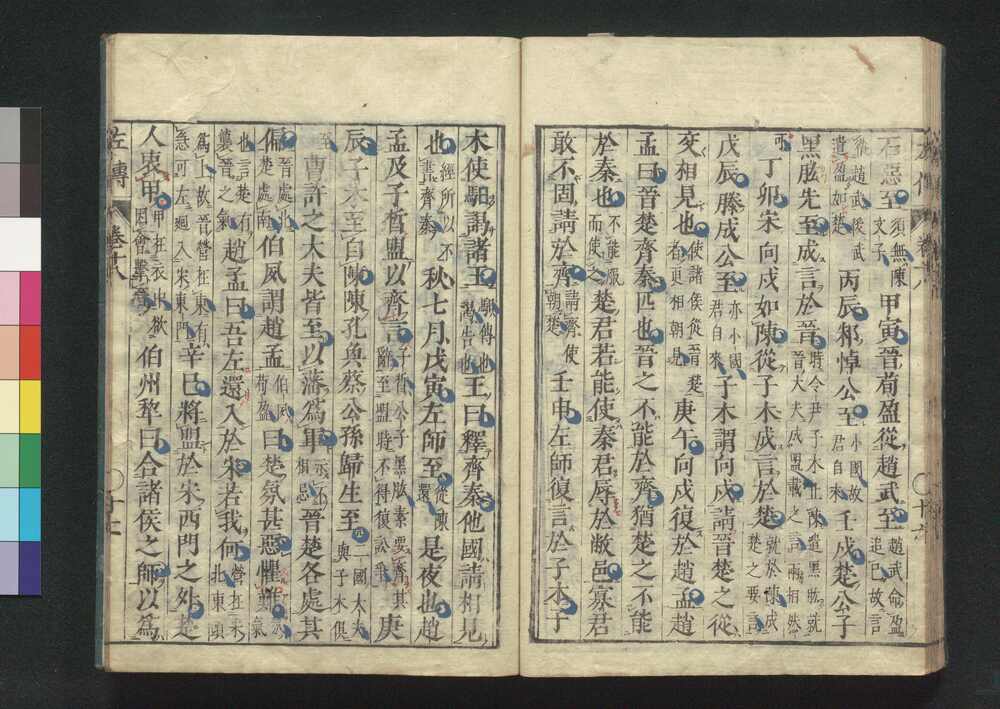 石惡至須無陳文子甲寅晉荀盈從趙武至趙武命盈追已故言
從趙武後武遣盈如楚丙辰邾悼公至小國故君自來壬戌楚公子
黑肱先至成言於晉時令尹子木止陳遣黑肱就晉大夫成盟載之言兩相然
可丁卯宋向戌如陳從子木成言於楚就於陳成楚之要言
戊辰滕成公至亦小國君自來子木謂向戌請晉楚之從
交相見也使諸侯從晉楚者更相朝見庚午向戌復於趙孟趙
孟曰晉楚齊秦匹也晉之不能於齊猶楚之不能
於秦也不能服而使之楚君若能使秦君辱於敝邑寡君
敢不固請於齊請齊使朝楚壬申左師復言於子木子
木使馹謁諸王馹傳也謁告也王曰釋齊秦他國請相見
也經所以不書齊秦秋七月戊寅左師至從陳還是夜也趙
孟及子晳盟以齊言子晳公子黑肱素要齊其辭至盟時不得復訟爭庚
辰子木至自陳陳孔奐蔡公孫歸生至二國大夫與子木俱
至曹許之大夫皆至以藩為軍示不相忌晉楚各處其
偏晉處北楚處南伯夙謂趙孟伯夙荀盈曰楚氛甚惡懼難氛氣
也言楚有襲晉之氣趙孟曰吾左還入於宋若我何營在宋北東頭
為上故晉營在東有急可左迴入宋東門辛巳將盟於宋西門之外楚
人衷甲甲在衣中欲因會擊晉伯州犁曰合諸侯之師以為
左傳 卷十八